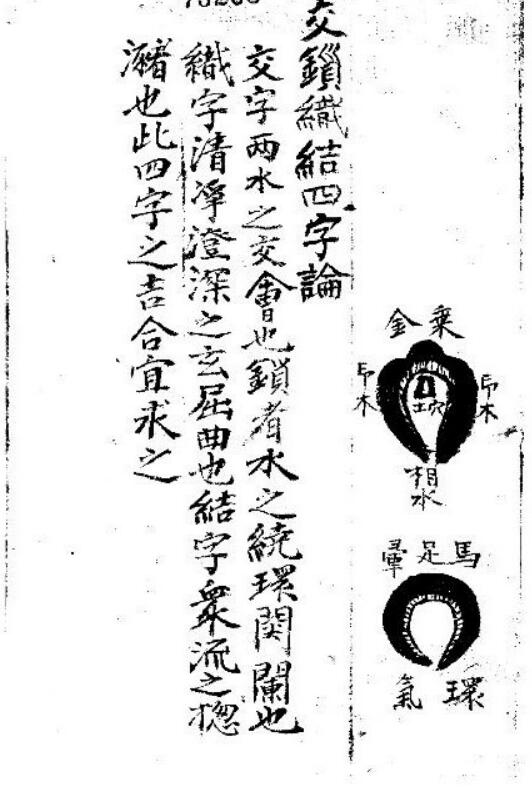 乗金
印木
印木
土穴
相水
馬足暈
環氣
交鎖織結四字論
交字兩水之交會也鎖者水之繞環関闌也
織字清淨澄深之玄屈曲也結字衆流之揔
瀦也此四字之吉合宜求之